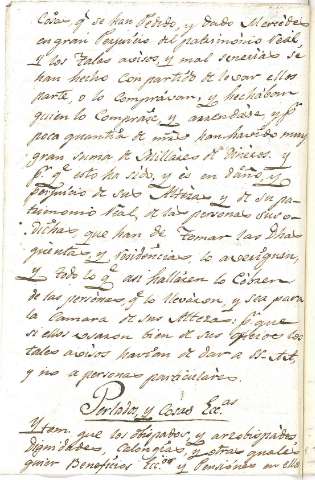 Cosas q̃ se han Pedido, y dado Mercedes
en gran Perjuicio del patrimonio Real,
y los tales avisos, y mal senerias se
han hecho con partido de levar ellos
parte, o lo compravan; y hechaban
quien lo Comprase, y arrendase, y pr.
poca quantia de mrs. han havido muy
gran suma de Millares de Dineros. y
pr. q̃ esto ha sido, y es en daño, y
perjuicio de sus Altezas y de su pa-
trimonio Real, de las personas suso-
Dichas, que han de Tomar las Dhas
quentas, y Residencias, lo averiguen,
y todo lo q̃ asi hallaren lo Cobren
de las personas, q̃ lo llevaron, y sea para
la Camara de sus Altezas: pr. que
si ellos usaran bien de sus oficios los
tales avisos havian de dar a SS. AA.
y no a personas particulares.
Perlados, y Cosas Ecc.as
Ytem, que los obispados, y arzobispados
Dignidades, Calongias, y otras quales-
quier Beneficios Ecc.os y Pensiones en ellos